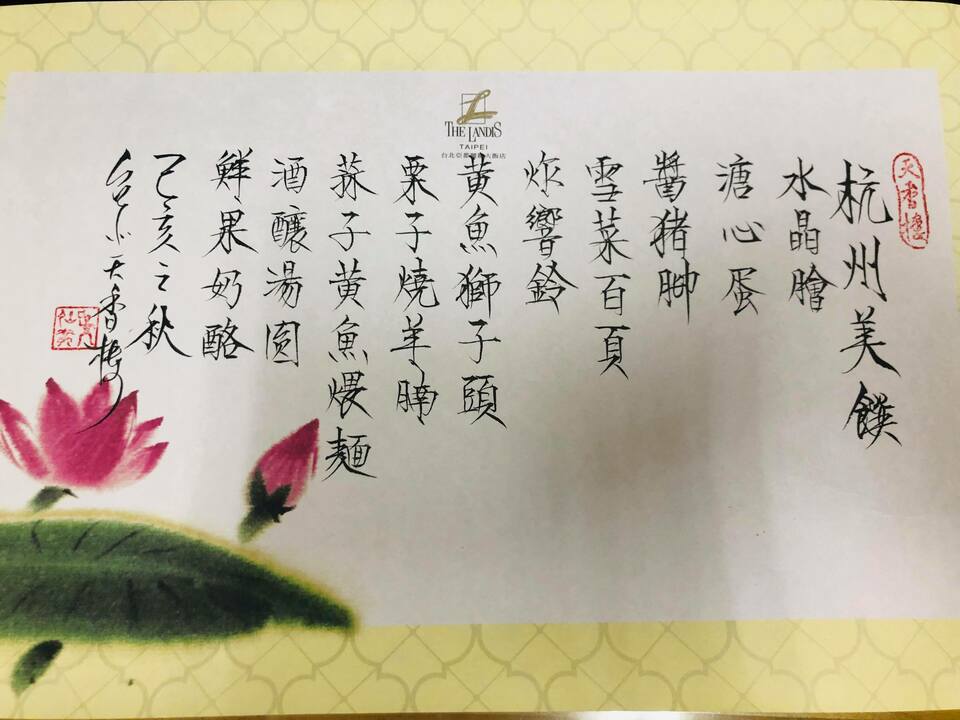 天香樓
杭州美饌
水晶膾
溏心蛋
醬豬腳
雪菜百頁
炸響鈴
黃魚獅子頭
栗子燒羊腩
蓀子黃魚煨麵
酒釀湯圆
鮮果奶酪
己亥之秋
台北天香樓
THE LANDIS
TAIPEI